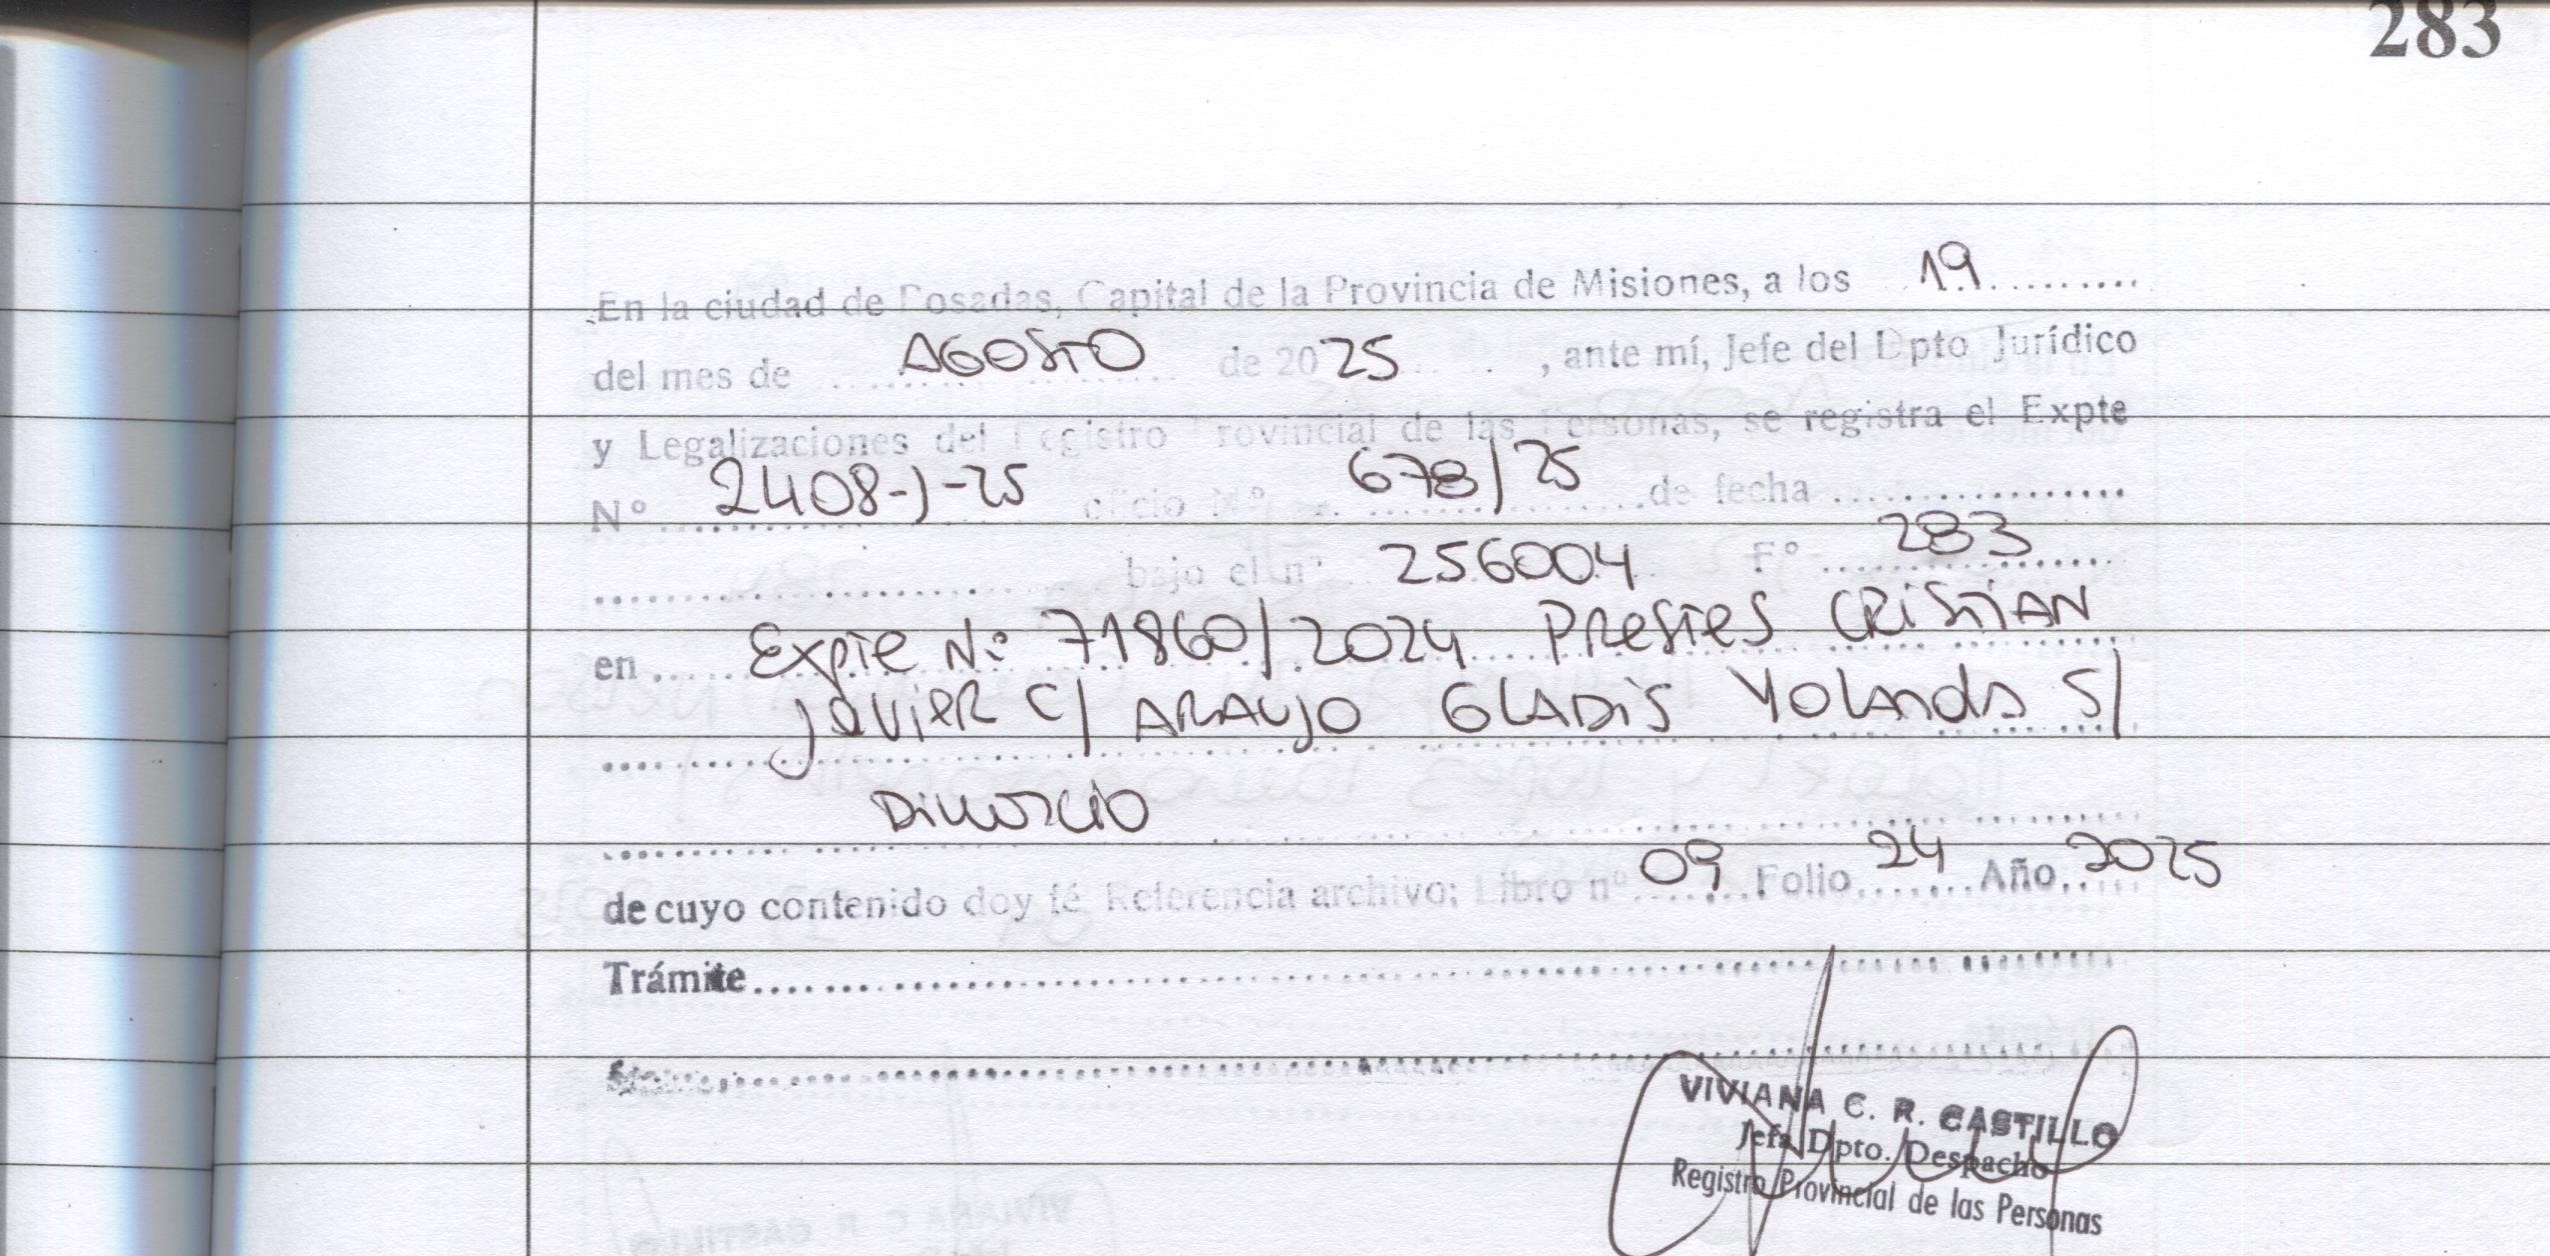 283
En la ciudad de Posadas, Capital de la Provincia de Misiones, a los 19
del mes de AGOSTO de 2025, ante mí, Jefe del Dpto Jurídico
y Legalizaciones del Registro Provincial de las Personas, se registra el Expte
Nº 2408-J-25 oficio Nº 678/25 de fecha
bajo el nº 256004 Fº 283
en Expte Nº 71860/2024 Prestes CRISTIAN
Javier C/ ARAUJO GLADIS Yolanda S/
Divorcio
de cuyo contenido doy fé Referencia archivo; Libro nº 09 Folio 24 Año 2025
Trámite
VIVIANA C. R. CASTILLO
Jefa Dpto. Despacho
Registro Provincial de las Personas